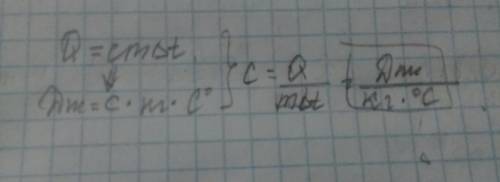 Q = cmΔt
Дж = c · кг · C°
} c = Q / mΔt = [ Дж / кг · °C ]